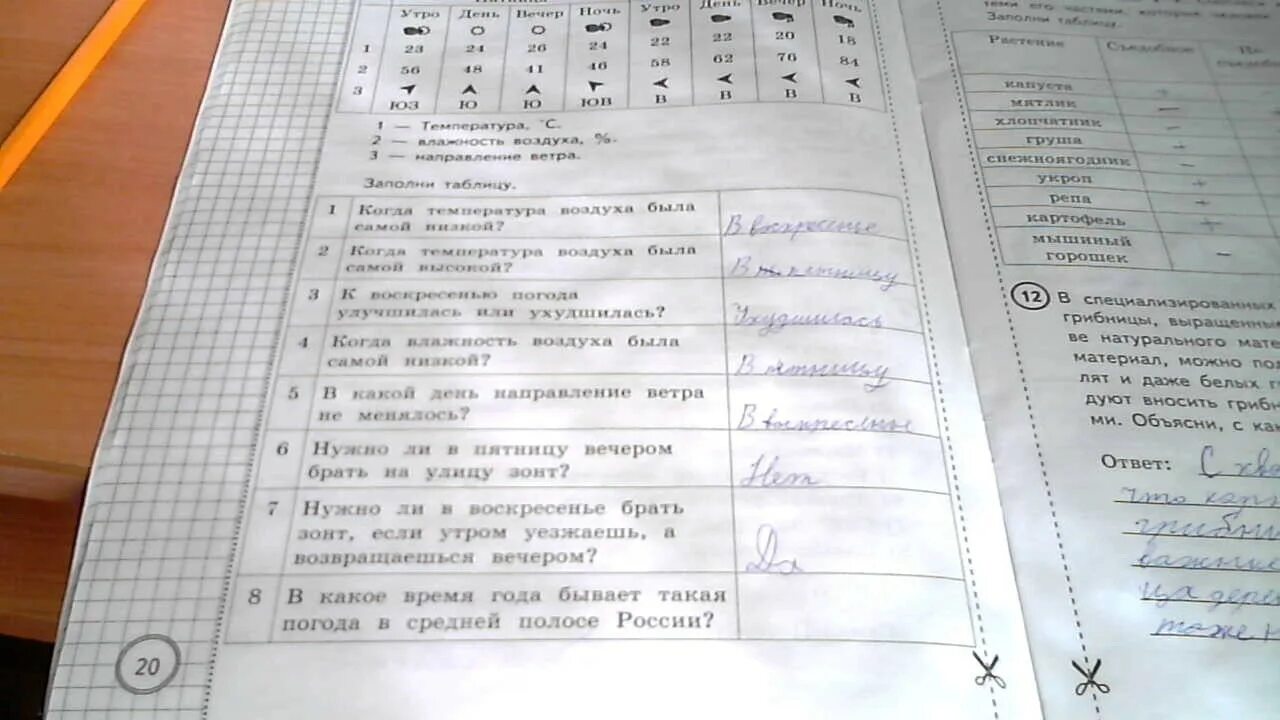 Утро День Вечер Ночь Утро День Вечер Ночь
1 23 24 26 24 22 22 20 18
2 56 48 41 46 58 62 76 84
3
ЮЗ Ю Ю ЮВ В В В В
1 — Температура, °C.
2 — влажность воздуха, %.
3 — направление ветра.
Заполни таблицу.
1 Когда температура воздуха была
самой низкой?
В воскресенье
2 Когда температура воздуха была
самой высокой?
В пятницу
3 К воскресенью погода
улучшилась или ухудшилась?
Ухудшилась
4 Когда влажность воздуха была
самой низкой?
В пятницу
5 В какой день направление ветра
не менялось?
В воскресенье
6 Нужно ли в пятницу вечером
брать на улицу зонт?
Нет
7 Нужно ли в воскресенье брать
зонт, если утром уезжаешь, а
возвращаешься вечером?
Да
8 В какое время года бывает такая
погода в средней полосе России?
20
Заполни таблицу.
Растение Съедобное
капуста +
мятлик —
хлопчатник —
груша +
снежноягодник —
укроп +
репа +
картофель +
мышиный
горошек —
12 В специализированных
грибницы, выращенны
ве натурального мате
материал, можно по
лят и даже белых г
дуют вносить гриб
ми. Объясни, с ка
Ответ: С
что